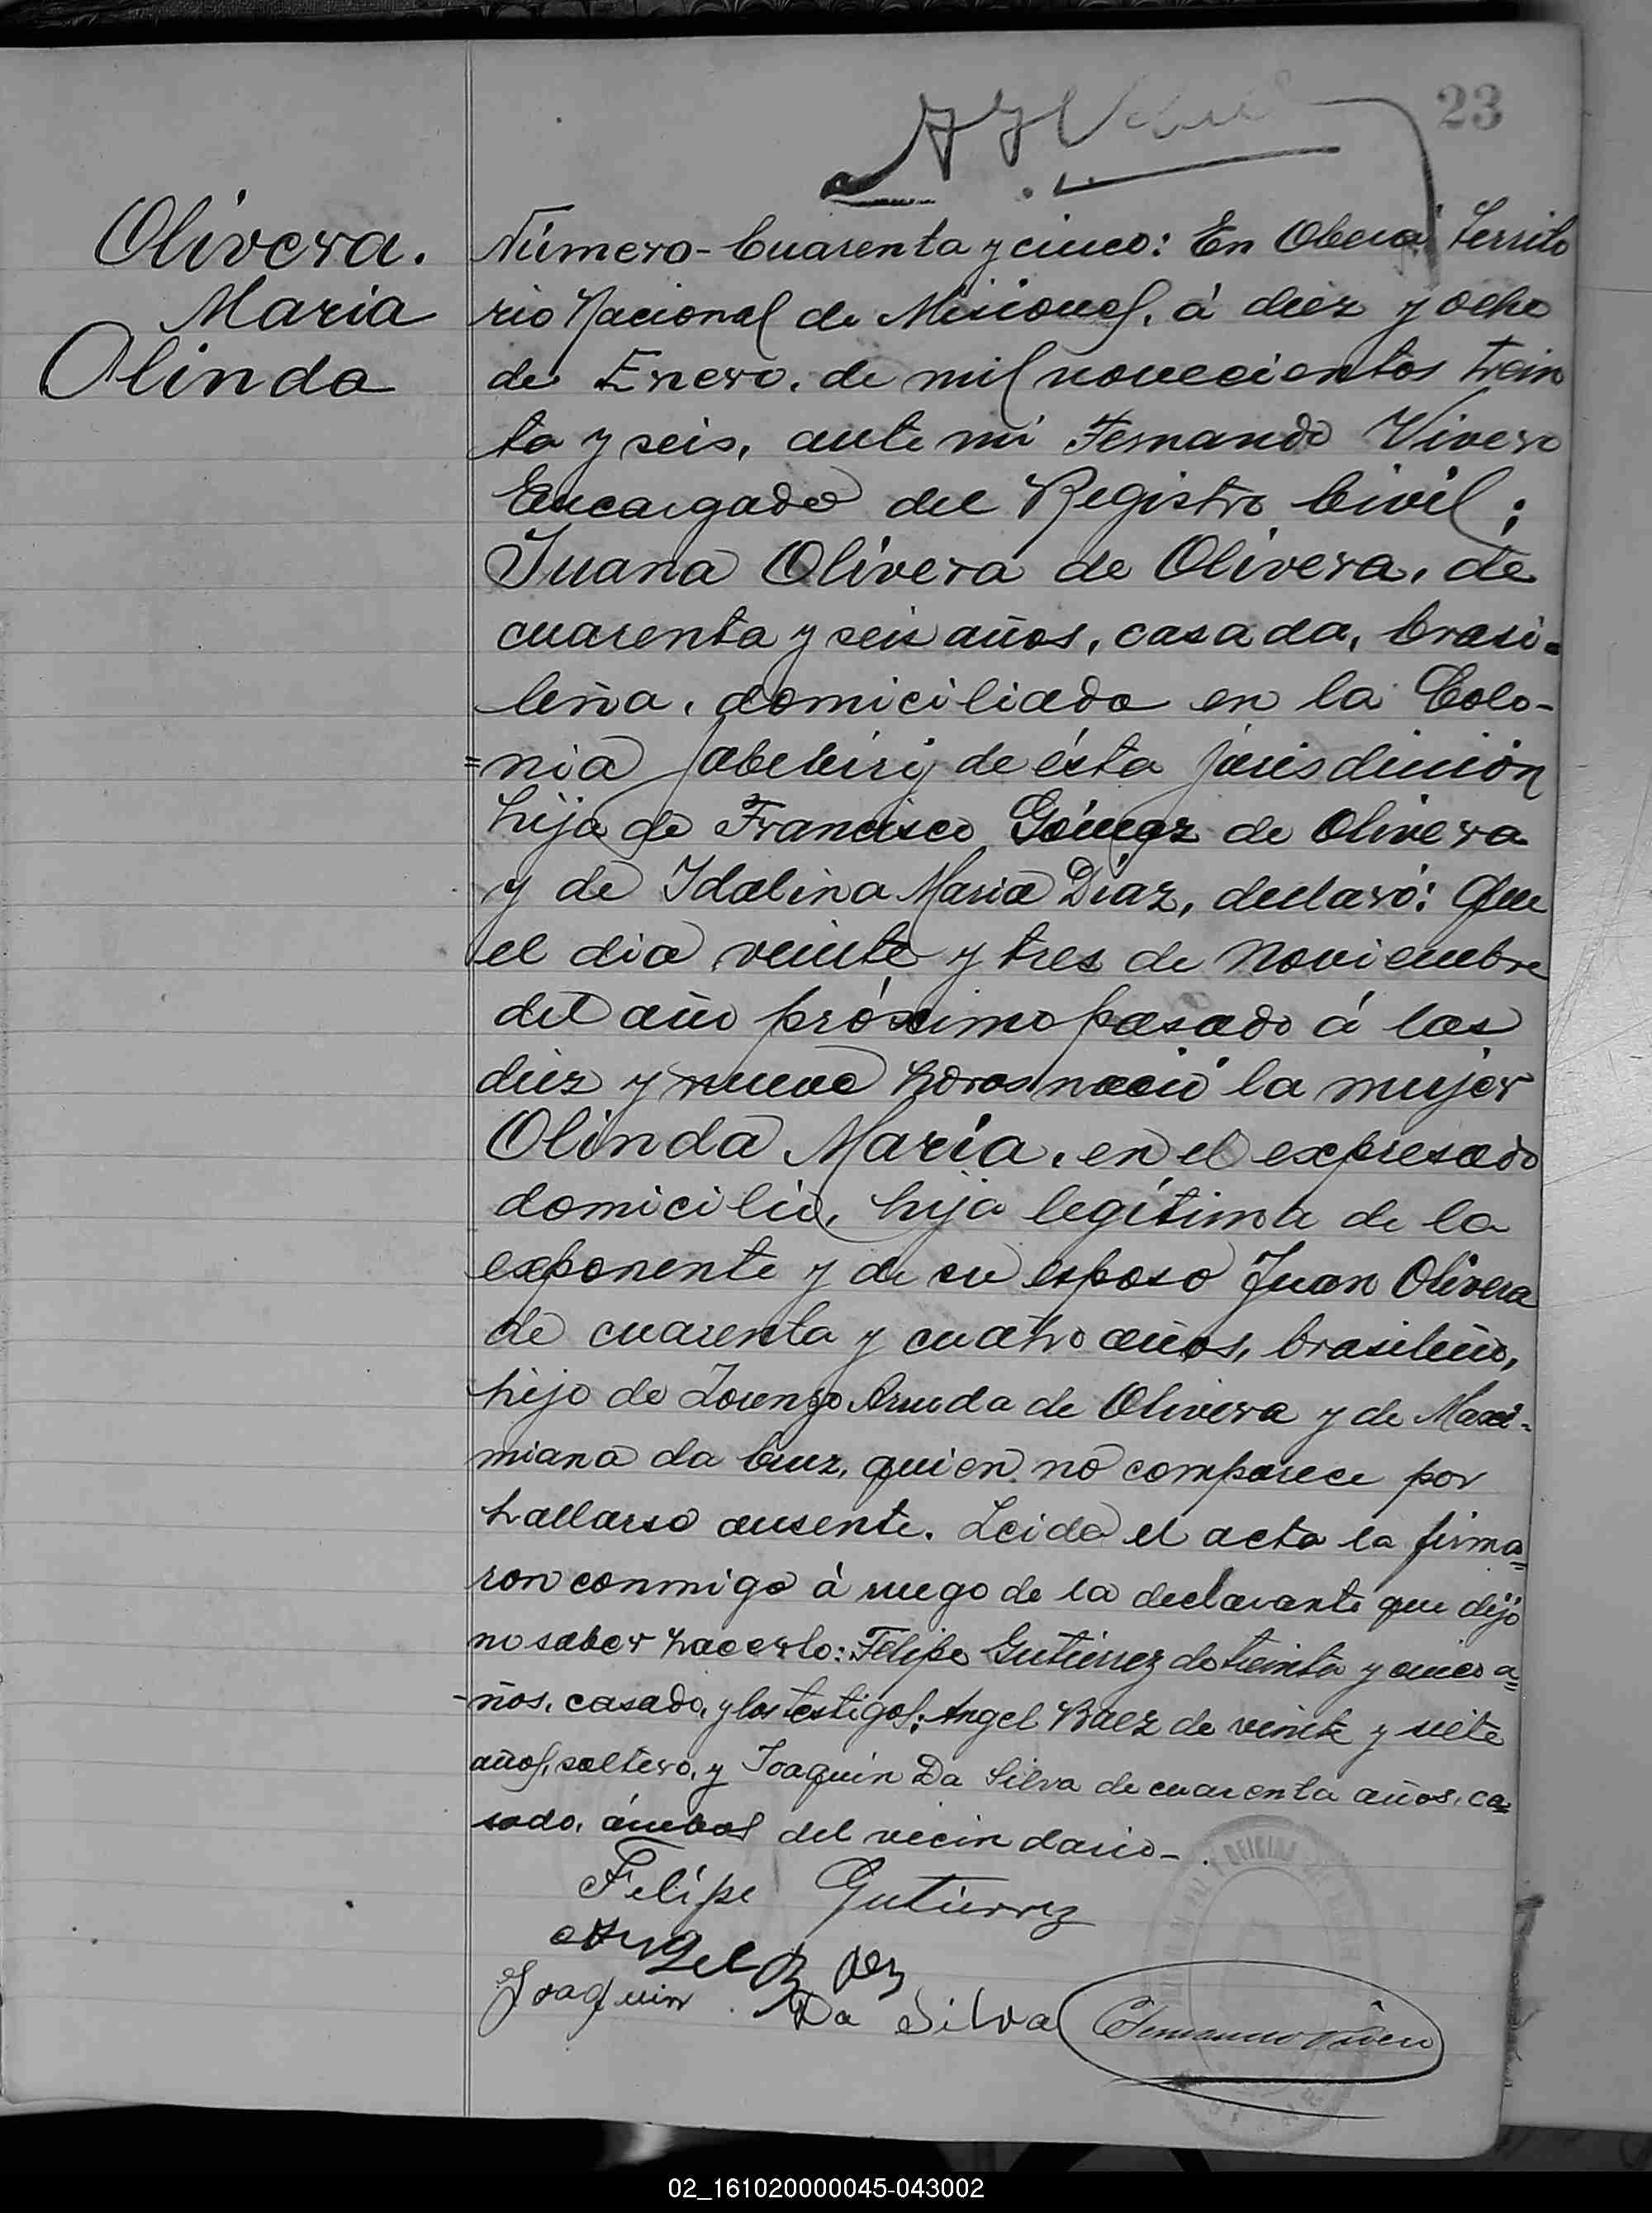 23
Olivera.
Maria
Olinda
Número - Cuarenta y cinco: En Oberá Territo
rio Nacional de Misiones, á diez y ocho
de Enero, de mil novecientos trein
ta y seis, ante mi Fernando Vivero
Encargado del Registro Civil;
Juana Olivera de Olivera, de
cuarenta y seis años, casada, brasi=
leña, domiciliada en la Colo-
=nia Yabebiri de ésta jurisdicción
hija de Francisco Gómez de Olivera
y de Idalina Maria Díaz, declaró: Que
el dia veinte y tres de Noviembre
del año próximo pasado á las
diez y nueve horas nació la mujer
Olinda María, en el expresado
domicilio, hija legítima de la
exponente y de su esposo Juan Olivera
de cuarenta y cuatro años, brasileño,
hijo de Lorenzo Arruda de Olivera y de Maxi-
miana da Cruz, quien no comparece por
hallarse ausente. Leida el acta la firma=
ron conmigo á ruego de la declarante que dijó
no saber hacerlo: Felipe Gutierrez de treinta y cinco a=
-ños, casado, y los testigos: Angel Baez de veinte y siete
años, soltero, y Joaquin Da Silva de cuarenta años, ca=
sado, ámbos del vecindario-.
Felipe Gutierrez
Angel Baez
Joaquin Da Silva
Fernando Vivero
02_161020000045-043002